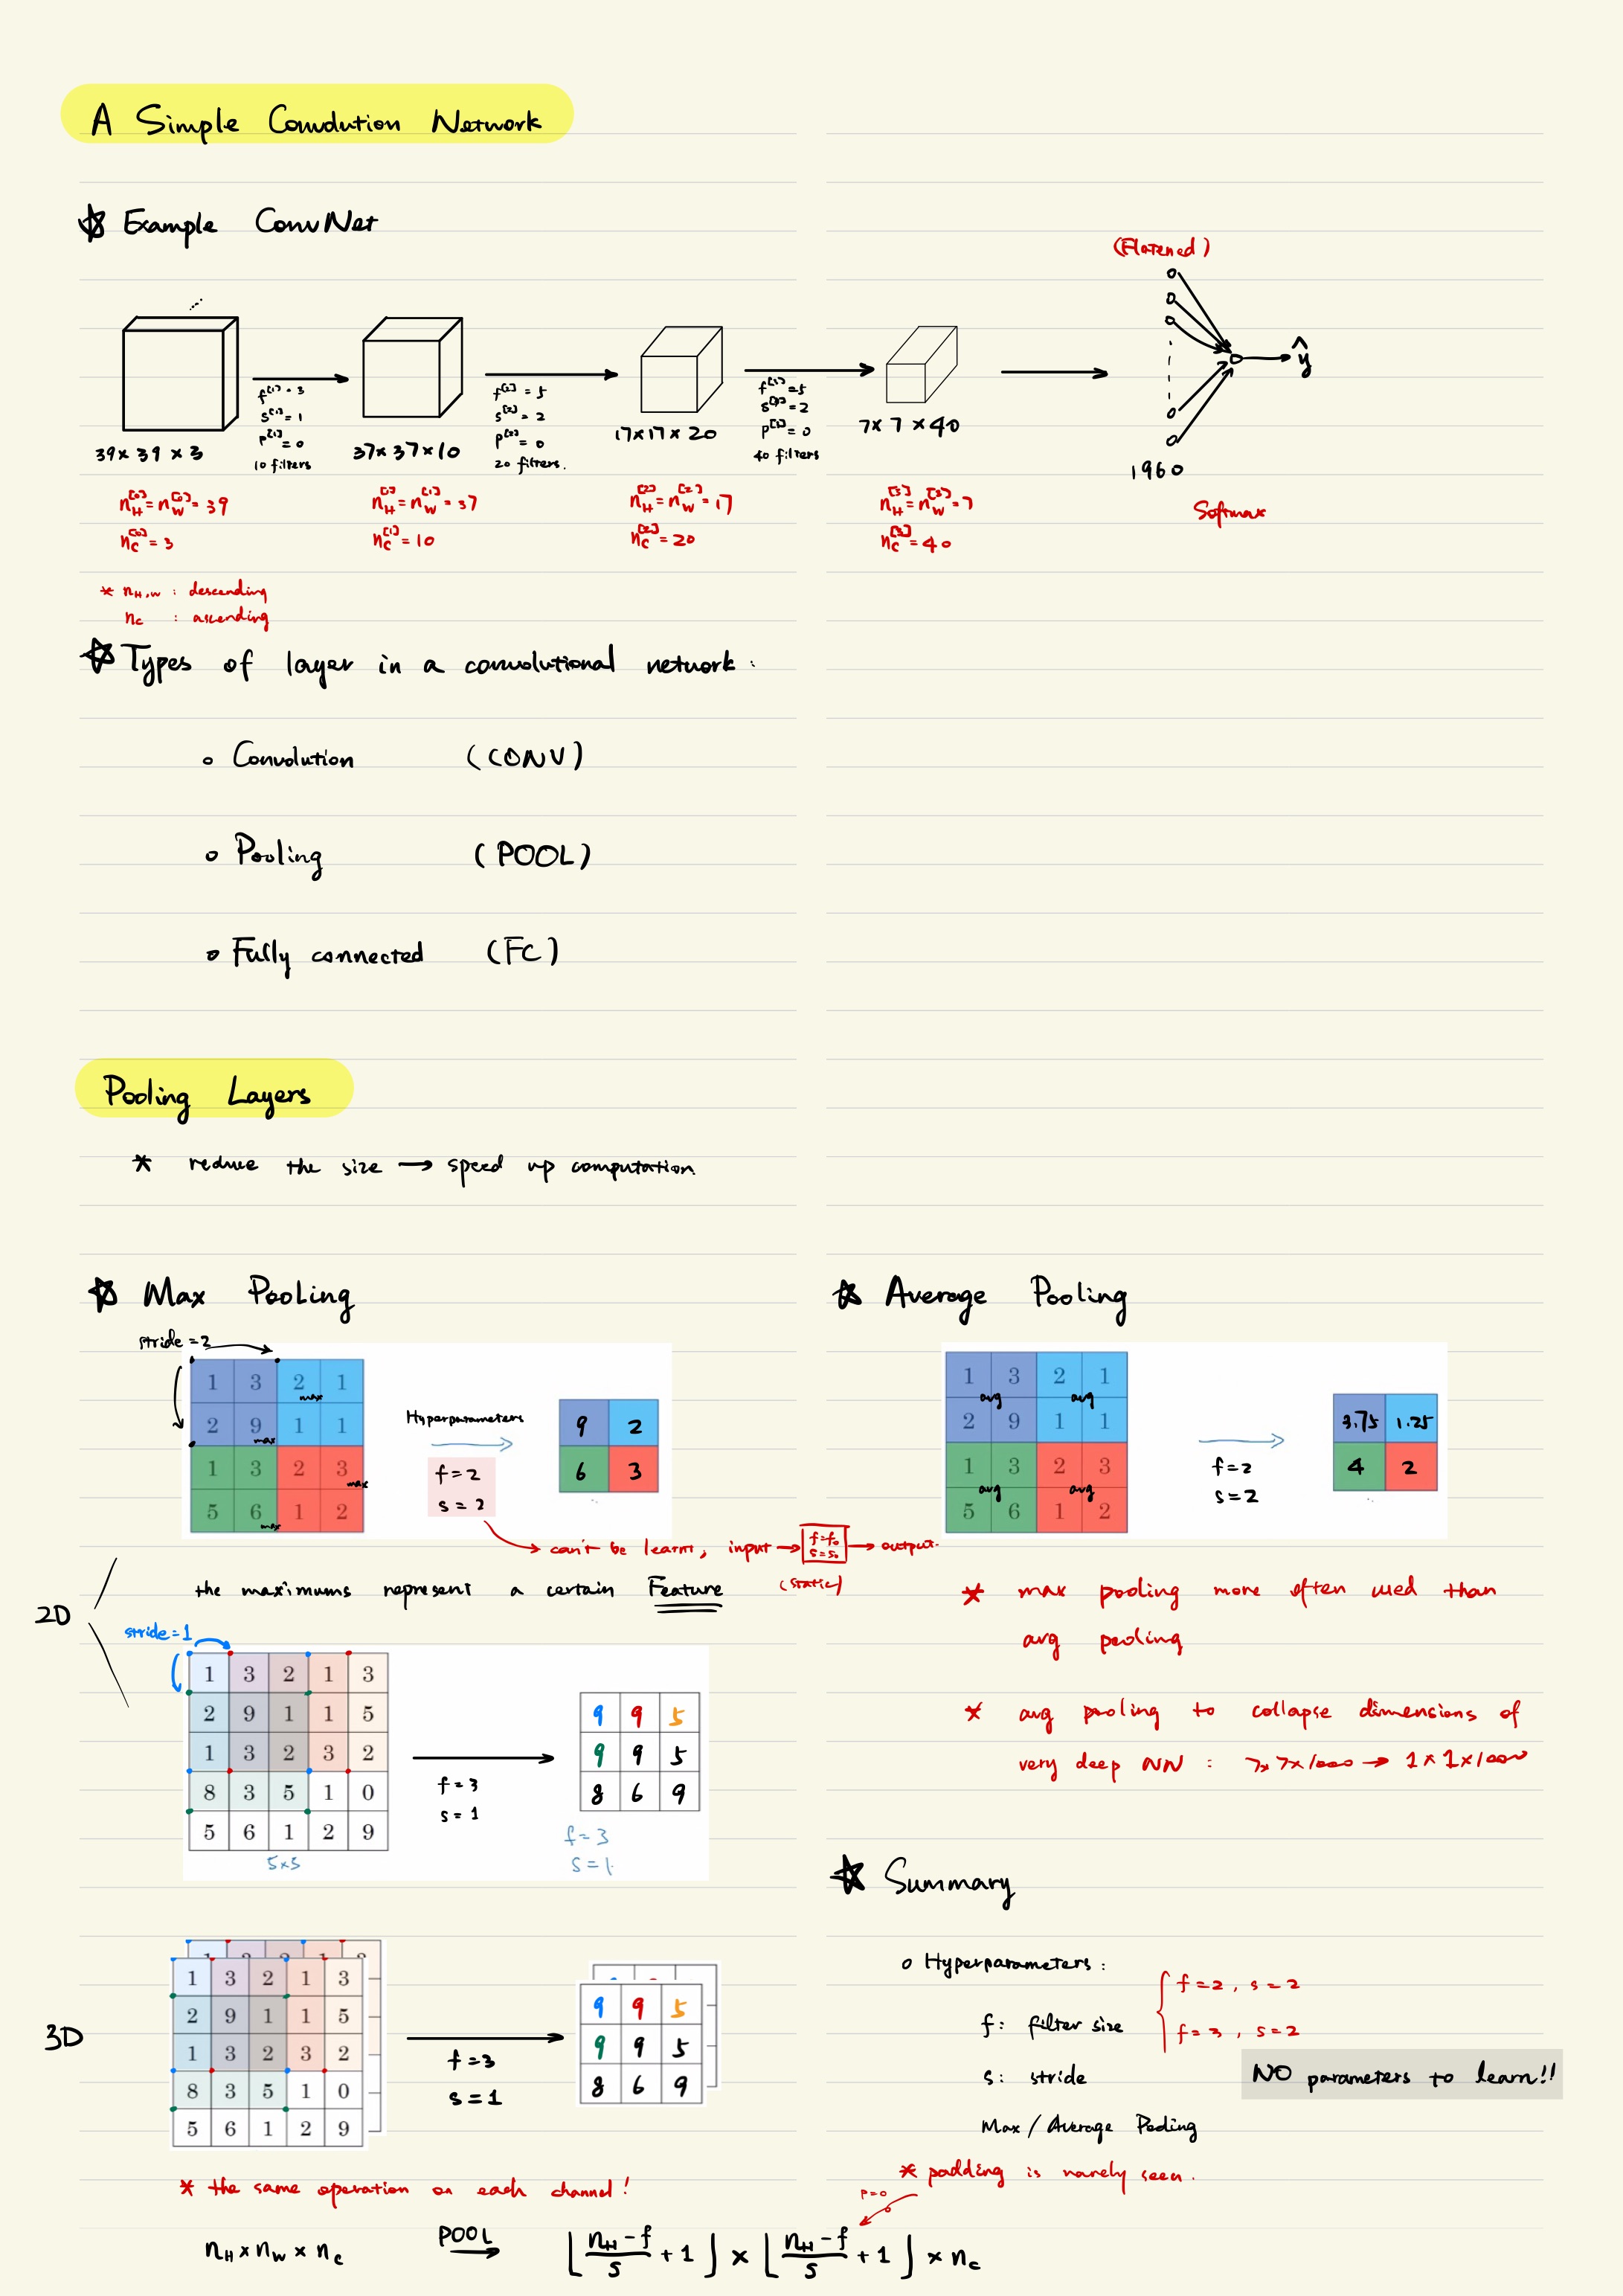 A Simple Convolution Network
Example ConvNet
(Flatened)
f[1] = 3
s[1] = 1
p[1] = 0
10 filters
f[2] = 5
s[2] = 2
p[2] = 0
20 filters.
=5
=2
=0
40 filters
ŷ
39 × 39 × 3
37 × 37 × 10
17 × 17 × 20
7 × 7 × 40
1960
Softmax
nH[0] = nW[0] = 39
nC[0] = 3
nH[1] = nW[1] = 37
nC[1] = 10
nH[2] = nW[2] = 17
nC[2] = 20
nH[3] = nW[3] = 7
nC[3] = 40
* nH,W : descending
nC : ascending
Types of layer in a convolutional network:
Convolution (CONV)
Pooling (POOL)
Fully connected (FC)
Pooling Layers
* reduce the size → speed up computation
Max Pooling
stride = 2
1 3 2 1
max
2 9 1 1
max
1 3 2 3
max
5 6 1 2
max
Hyperparameters
f = 2
s = 2
9 2
6 3
can't be learnt, input → f = f0 s = s0 → output.
(static)
the maximums represent a certain Feature
2D
stride = 1
1 3 2 1 3
2 9 1 1 5
1 3 2 3 2
8 3 5 1 0
5 6 1 2 9
5×5
f = 3
s = 1
9 9 5
9 9 5
8 6 9
f = 3
s = 1
3D
1 3 2 1 3
2 9 1 1 5
1 3 2 3 2
8 3 5 1 0
5 6 1 2 9
f = 3
s = 1
9 9 5
9 9 5
8 6 9
* the same operation on each channel!
nH × nW × nc POOL → ⌊(nH − f)/s + 1⌋ × ⌊(nH − f)/s + 1⌋ × nc
Average Pooling
1 3 2 1
avg avg
2 9 1 1
1 3 2 3
avg avg
5 6 1 2
f = 2
s = 2
3.75 1.25
4 2
* max pooling more often used than
avg pooling
* avg pooling to collapse dimensions of
very deep NN : 7×7×1000 → 1×1×1000
Summary
Hyperparameters:
f: filter size
f = 2, s = 2
f = 3, s = 2
s: stride
NO parameters to learn!!
Max / Average Pooling
* padding is rarely seen.
p=0